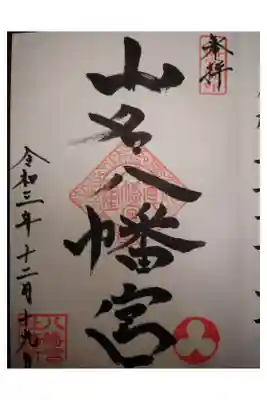 奉拝
山名八幡宮
令和三年十二月十九日